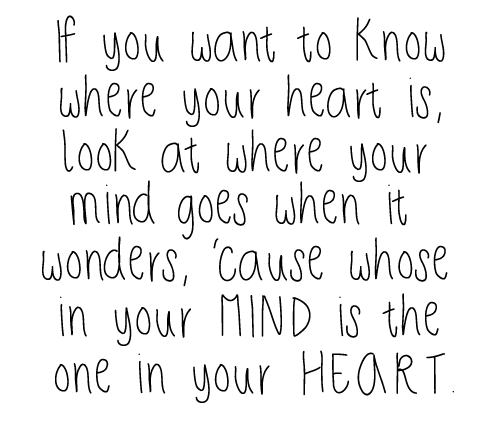 If you want to Know
where your heart is,
look at where your
mind goes when it
wonders, 'cause whose
in your MIND is the
one in your HEART.